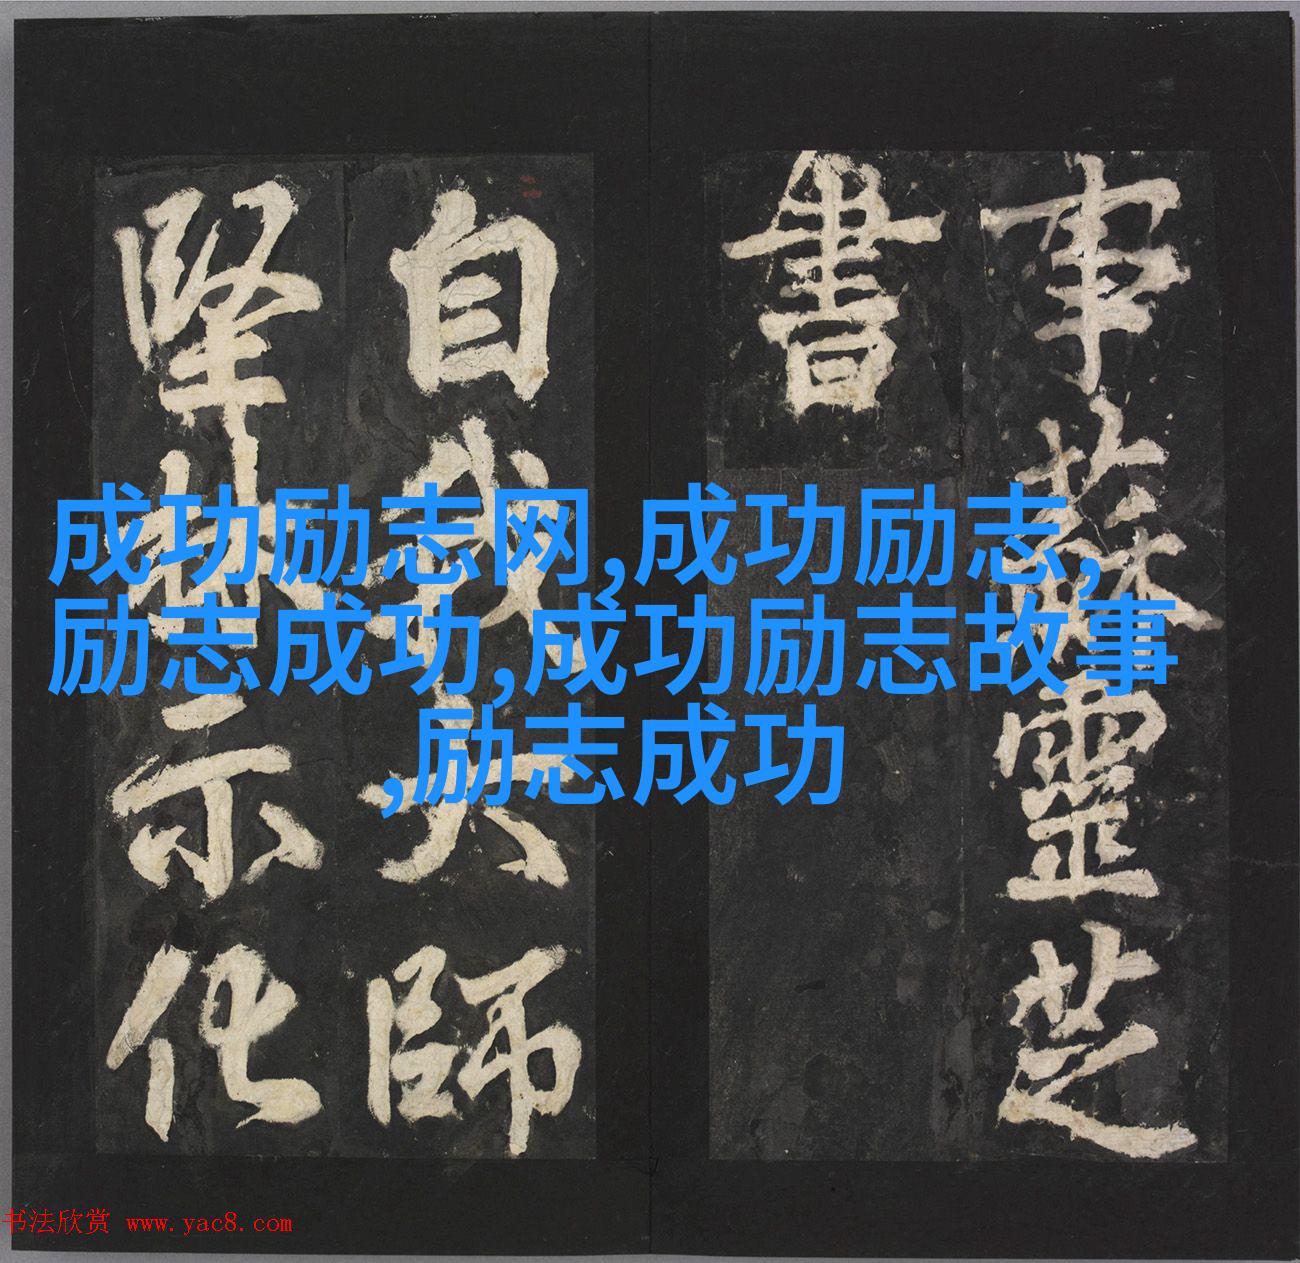 事蘇靈芝
書
自我大師
堅林示化
成功励志网,成功励志,
励志成功,成功励志故事
,励志成功
书法欣赏 www.yac8.com